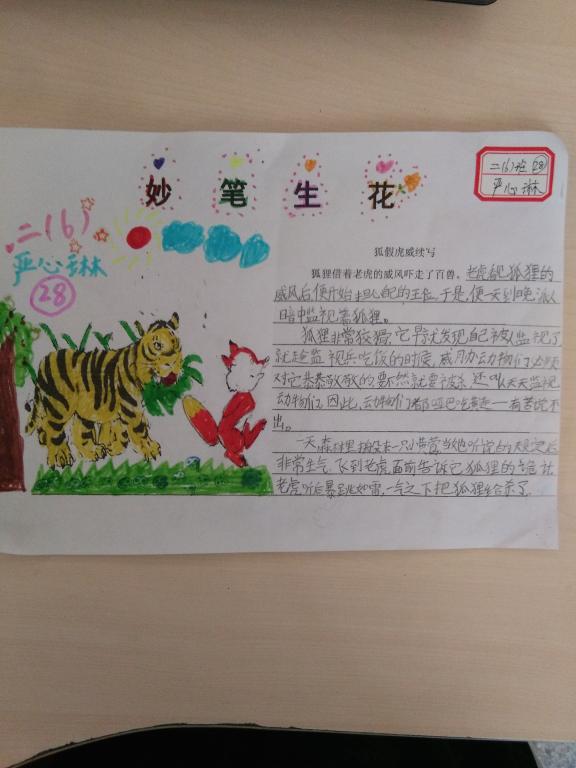 妙笔生花
二(6)班 28
严心琳
二(6)
严心琳
28
狐假虎威续写
狐狸借着老虎的威风吓走了百兽。老虎看见狐狸的
威风后便开始担心自己的王位。于是,便一天到晚派人
暗中监视着狐狸。
狐狸非常狡猾,它早就发现自己被人监视了
就趁监视兵吃饭的时候,威胁动物们必须
对它恭恭敬敬的要不然就要被 还叫天天监视
动物们。因此,动物们都哑巴吃黄连一有苦说不
出。
一天,森林里搬来一只小黄莺,当他听说 后
非常生气,飞到老虎面前告诉它狐狸的
老虎听后暴跳如雷,一气之下把狐狸给杀了